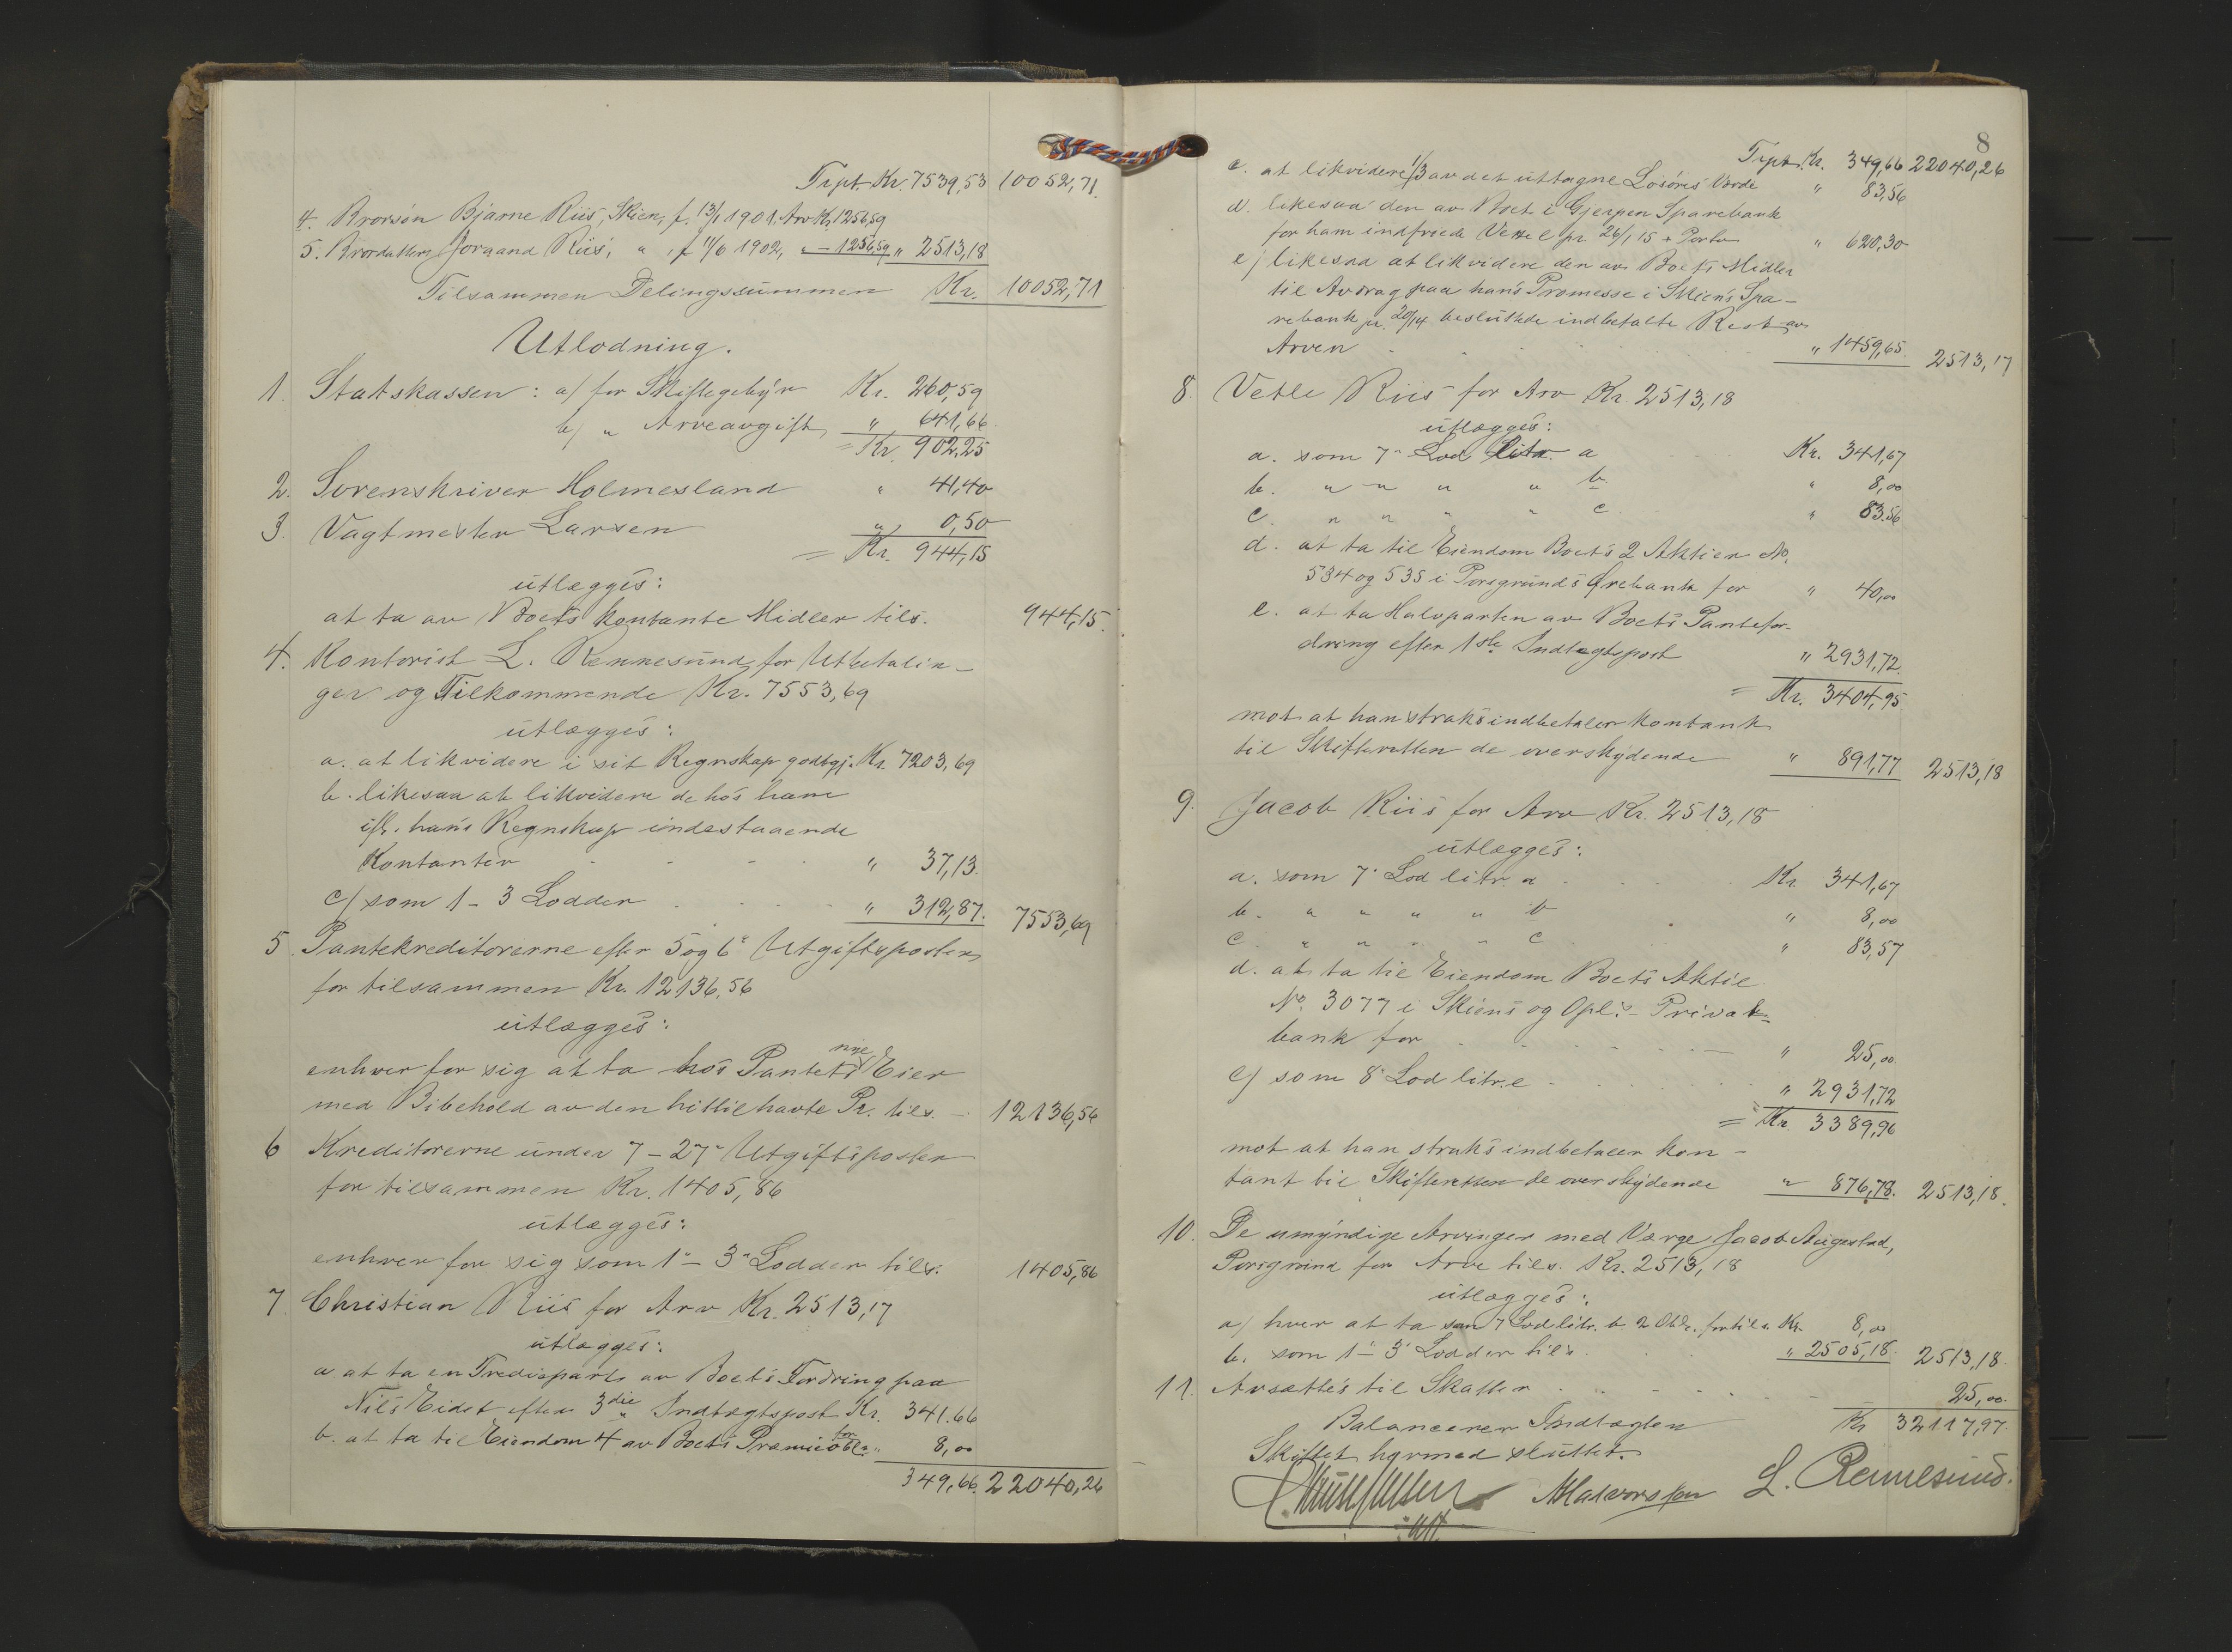 Trpt. Kr. 7539,53 10052,71.
4. Brorsön Bjarne Riis, Skien, f. 13/1 1901. Arv Kr. 1256,59
5. Brordatter Jorgand Riis, " , f 11/6 1902, " - 1256,59 " 2513,18
Tilsammen Delingssummen Kr. 10052,71
Utlodning.
1. Statskassen: a/ for Skiftegebyr Kr. 260,59
b/ " Arveavgift " 641,66
= Kr. 902,25
2. Sorenskriver Holmesland " 41,40
3. Vagtmester Larsen " 0,50
= Kr. 944,15
utlægges:
at ta av Boets kontante Midler tils. 944,15.
4. Kontorist L. Rennesund for Utbetalin-
ger og Tilkommende Kr. 7553,69
utlægges:
a. at likvidere i sit Regnskap godtgj. Kr. 7203,69
b. likesaa at likvidere de hos ham
ifl. hans Regnskap indestaaende
Kontanter " 37,13.
c/ som 1 - 3 Lodder " 312,87. 7553,69
5. Pantekreditorerne efter 5 og 6" Utgiftsposter
for tilsammen Kr. 12136,56
utlægges:
enhver for sig at ta hos Pantets nye Eier
med Bibehold av den hittil havte Pr. tils. - 12136,56
6 Kreditorerne under 7 - 27" Utgiftsposter
for tilsammen Kr. 1405,86
utlægges:
enhver for sig som 1" - 3" Lodder tils. 1405,86
7. Christian Riis for Arv Kr. 2513,17
utlægges:
a at ta en Trediepart av Boets Fordring paa
Nils Eidet efter 3die Indtægtspost Kr. 341.66
b. at ta til Eiendom 4 av Boets Præmieobl. for " 8,00
349,66. 22040,26
8
Trpt. Kr. 349,66 22040,26
c. at likvidere 1/3 av det uttagne Losöres Værde " 83,56
d. likesaa den av Boet i Gjerpen Sparebank
for ham indfriede Vexel pr. 26/1 15 + Porto " 620,30
e/ likesaa at likvidere den av Boets Midler
til Avdrag paa hans Promesse i Skiens Spa-
rebank pr. 20/14 besluttede indbetalte Rest av
Arven " 1459,65. 2513,17
8. Vetle Riis for Arv Kr. 2513,18
utlægges:
a. som 7" Lod litr. a Kr. 341,67
b. " " " " b. " 8,00
c. " " " " c. " 83.56
d. at ta til Eiendom Boets 2 Aktier No.
534 og 535 i Porsgrunds bank for " 40,00
e. at ta Halvparten av Boets Pantefor-
dring efter 1ste Indtægtspost " 2931,72.
= Kr. 3404,95
mot at han straks indbetaler kontant
til Skifteretten de overskydende " 891,77 2513,18
9. Jacob Riis for Arv Kr. 2513,18
utlægges:
a. som 7" Lod litr. a Kr. 341,67
b. " " " " b " 8,00
c. " " " " c " 83,57
d. at ta til Eiendom Boets Aktie
No. 3077 i Skiens og Opl.s Privat-
bank for " 25,00
e/ som 8" Lod litr. e - " 2931,72
= Kr. 3389,96
mot at han straks indbetaler kon-
tant til Skifteretten de overskydende " 876,78. 2513,18.
10. De umyndige Arvinger med Værge Jacob Augestad,
Porsgrund for Arv tils. Kr. 2513,18
utlægges:
a/ hver at ta som 7 Lod litr. b. 2 Obl. for tils. Kr. 8,00
b. som 1" - 3" Lodder tils. " 2505,18. 2513,18.
11. Avsættes til Skatter 25,00.
Balancerer Indtægten Kr 32117,97.
Skiftet hermed sluttet.
Halvorsen L. Rennesund.